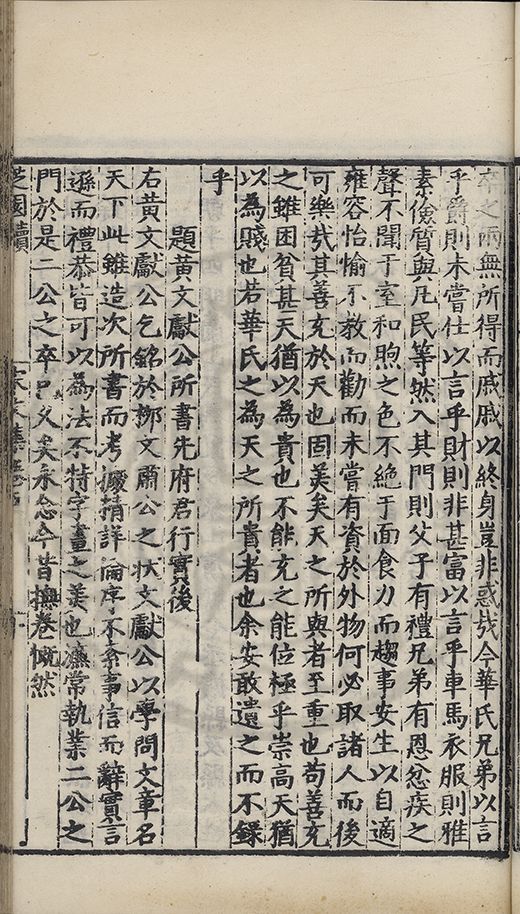 卒之兩無所得而戚戚以終身豈非惑㢤今華氏兄弟以言
乎爵則未嘗仕以言乎財則非甚富以言乎車馬衣服則雅
素儉質與凡民等然入其門則父子有禮兄弟有恩忿疾之
聲不聞于室和煦之色不絶于面食力而趨事安生以自適
雍容怡愉不教而勸而未嘗有資於外物何必取諸人而後
可樂㢤其善充於天也固美矣天之所與者至重也苟善充
之雖困貧甚天猶以為貴也不能充之能位極乎崇高天猶
以為賤也若華氏之為天之所貴者也余安敢遺之而不錄
乎
題黃文獻公所書先府君行實後
右黃文獻公乞銘於栁文肅公之狀文獻公以學問文章名
天下此雖造次所書而考㩀精詳論序不紊事信而辭實言
遜而禮恭皆可以為法不特字畫之美也濂常執業二公之
門於是二公之卒已久矣永念今昔撫卷慨然
芝園續
宋文集